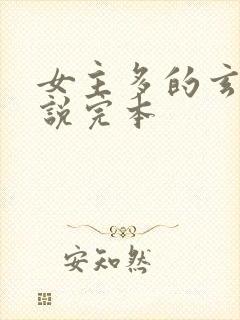 女主多的玄
說完本
安知然